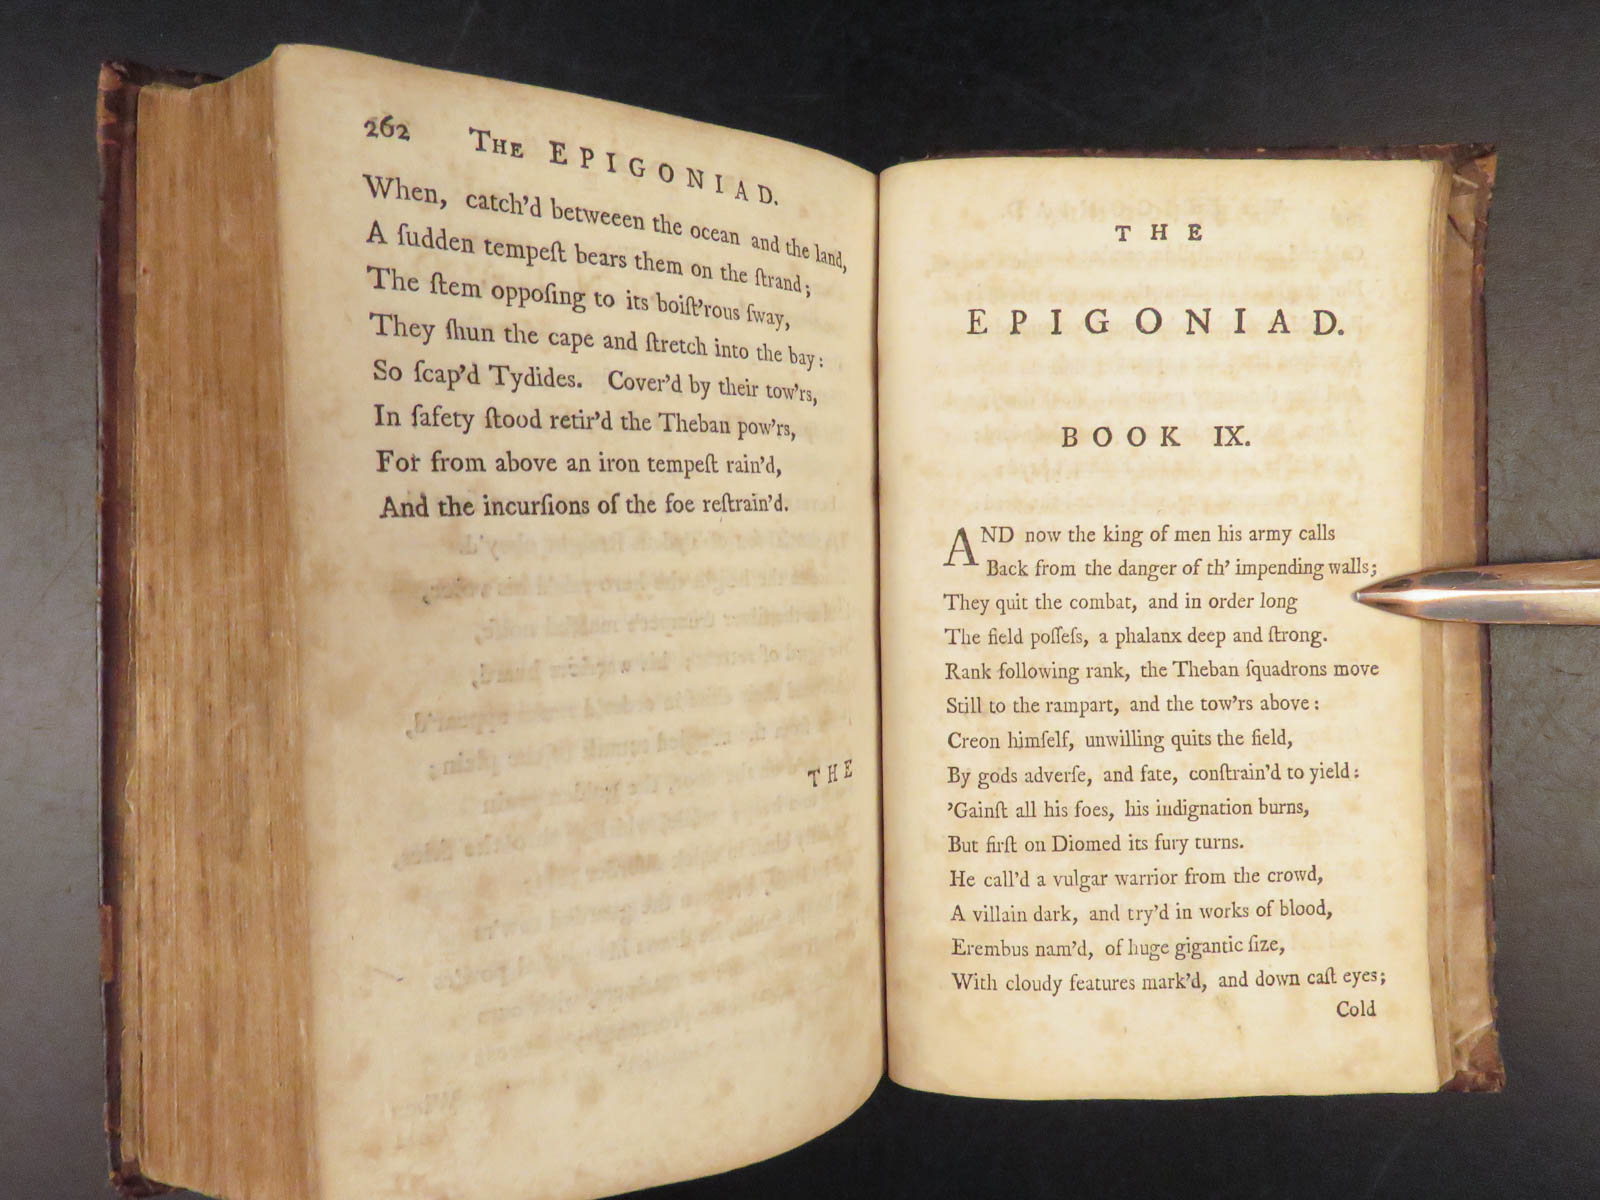 262 The EPIGONIAD.
When, catch'd betweeen the ocean and the land,
A ſudden tempeſt bears them on the ſtrand;
The ſtem oppoſing to its boiſt'rous ſway,
They ſhun the cape and ſtretch into the bay:
So ſcap'd Tydides. Cover'd by their tow'rs,
In ſafety ſtood retir'd the Theban pow'rs,
For from above an iron tempeſt rain'd,
And the incurſions of the foe reſtrain'd.
THE
THE
EPIGONIAD.
BOOK IX.
AND now the king of men his army calls
Back from the danger of th' impending walls;
They quit the combat, and in order long
The field poſſeſs, a phalanx deep and ſtrong.
Rank following rank, the Theban ſquadrons move
Still to the rampart, and the tow'rs above:
Creon himſelf, unwilling quits the field,
By gods adverſe, and fate, conſtrain'd to yield:
'Gainſt all his foes, his indignation burns,
But firſt on Diomed its fury turns.
He call'd a vulgar warrior from the crowd,
A villain dark, and try'd in works of blood,
Erembus nam'd, of huge gigantic ſize,
With cloudy features mark'd, and down caſt eyes;
Cold